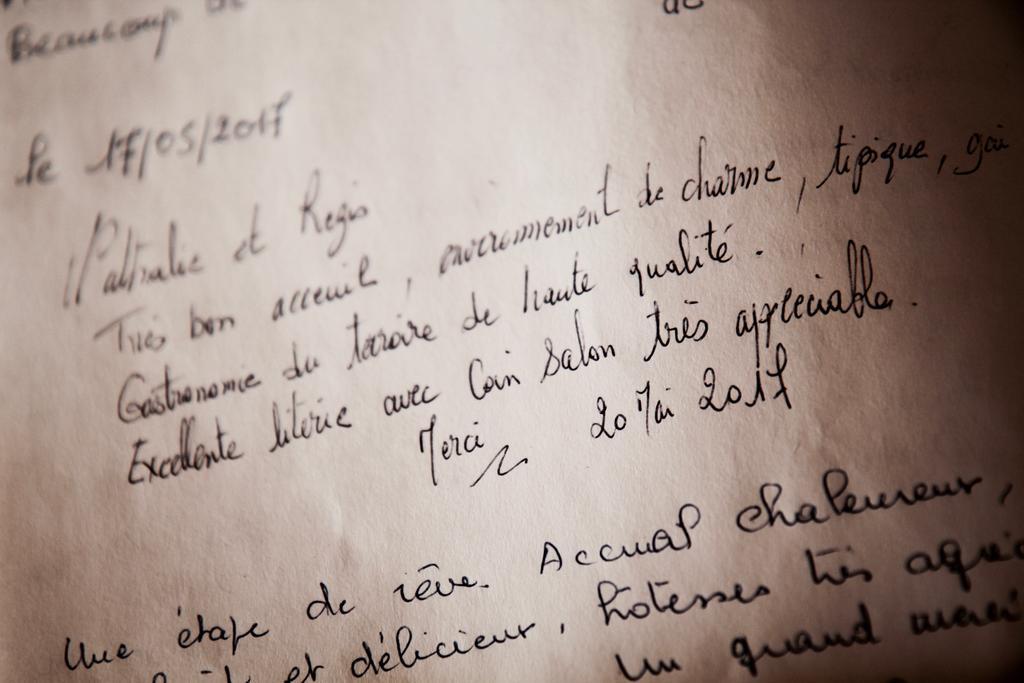 Beaucoup de
de
le 17/05/2017
Nathalie et Regis
Très bon acceuil, environnement de charme, tipique, gai
Gastronomie du terroire de haute qualité.
Excellente literie avec Coin Salon très appreciable.
Merci 20 Mai 2017
Une étape de rêve. Accueil chaleureux,
et délicieux, hôtesses très agré
un grand merci